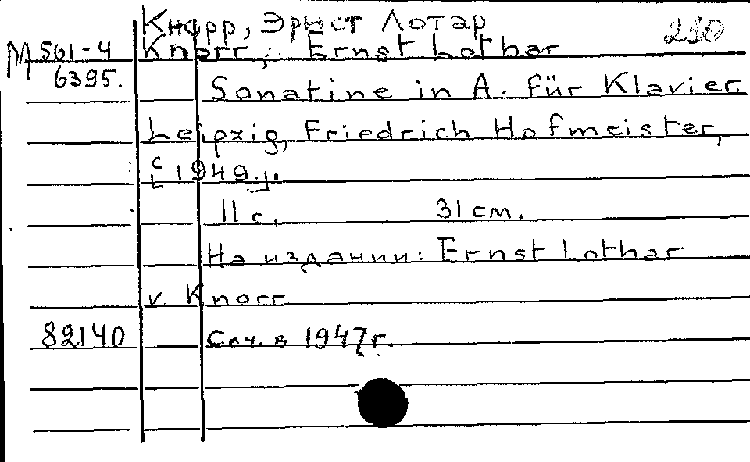 Кнорр, Эрнст Лотар 210
М 561-4 Knorr, Ernst Lothar
6395. Sonatine in A. für Klavier.
Leipzig, Friedrich Hofmeister,
[1949].
11 с. 31 см.
На издании: Ernst Lothar
v. Knorr
82140 Соч. в 1947 г.